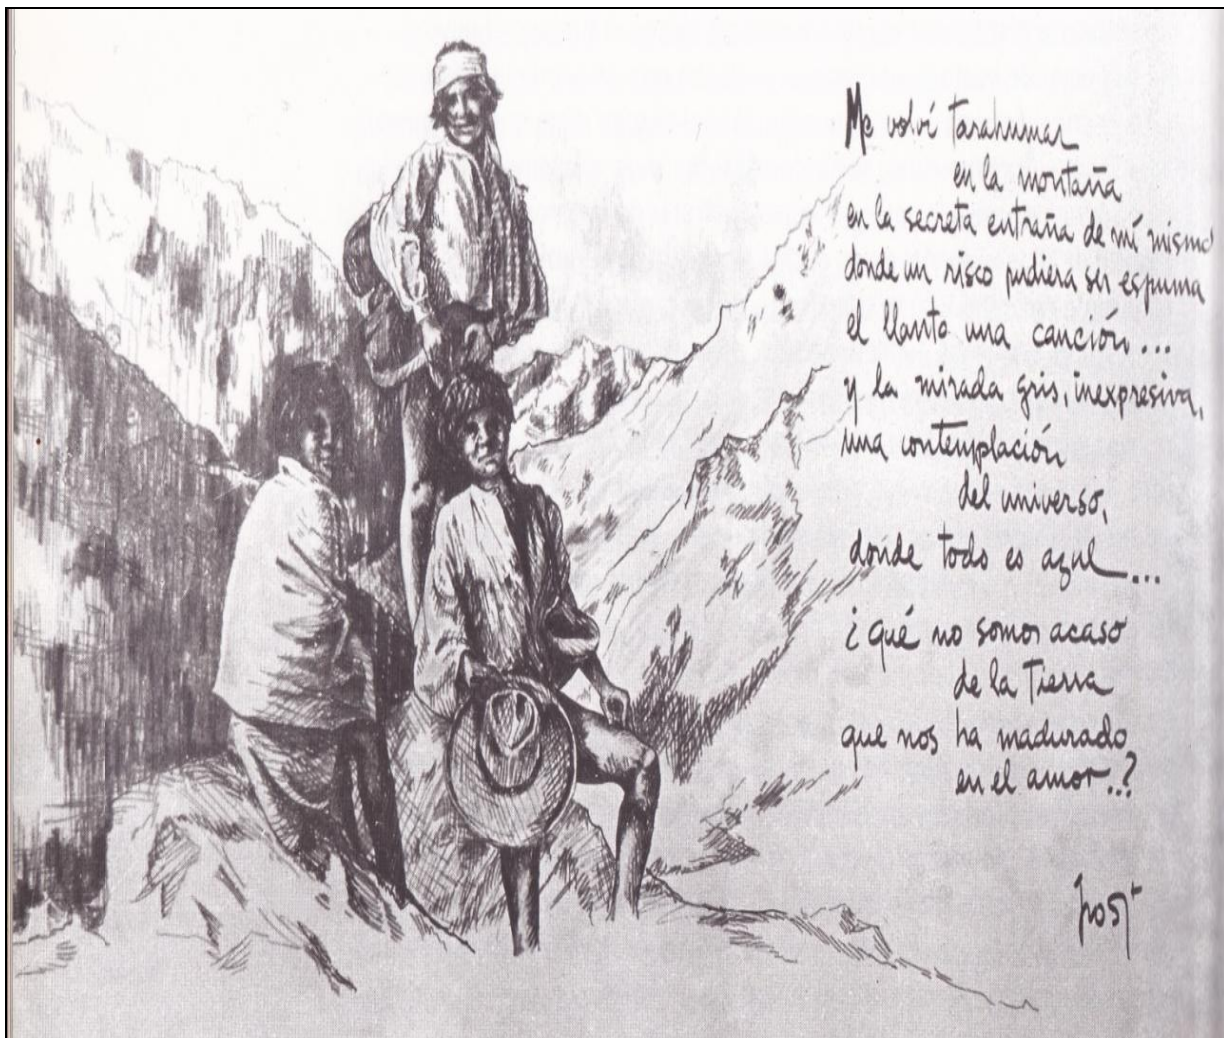 Me volví tarahumar
en la montaña
en la secreta entraña de mí mismo
donde un risco pudiera ser espuma
el llanto una canción...
y la mirada gris, inexpresiva,
una contemplación
del universo,
donde todo es azul...
¿qué no somos acaso
de la Tierra
que nos ha madurado
en el amor..?